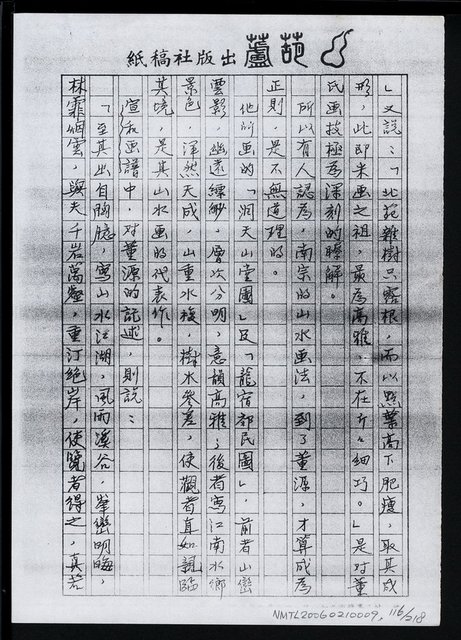 紙稿社版出蘆葩
」又說：「北苑雜樹只露根，而以點葉高下肥瘦，取其成
形，此即米画之祖，最為高雅，不在斤々細巧。」是对董
氏画技極為深刻的瞭解。
所以有人認為，南宗的山水画法，到了董源，才算成為
正則，是不無道理的。
他所画的「洞天山堂圖」及「龍宿郊民圖」，前者山巒
雲影，幽遠縹緲，層次分明，意韻高雅；後者寫江南水鄉
景色，渾然天成，山重水複，樹木參差，使觀者直如親臨
其境，是其山水画的代表作。
宣和画譜中，对董源的記述，則說：
「至其出自胸臆，寫山水江湖，風雨溪谷，峯巒明晦，
林霏烟雲，與夫千岩萬壑，重汀絕岸，使覽者得之，真若
NMTL20060210009, 116/218